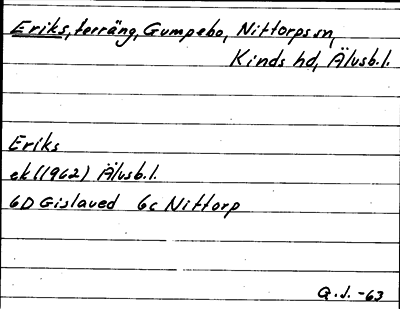 Eriks, terräng, Gumpebo, Nittorps sn,
Kinds hd, Älvsb.l.
Eriks
ek(1962) Älvsb.l.
6D Gislaved 6c Nittorp
G.J. -63